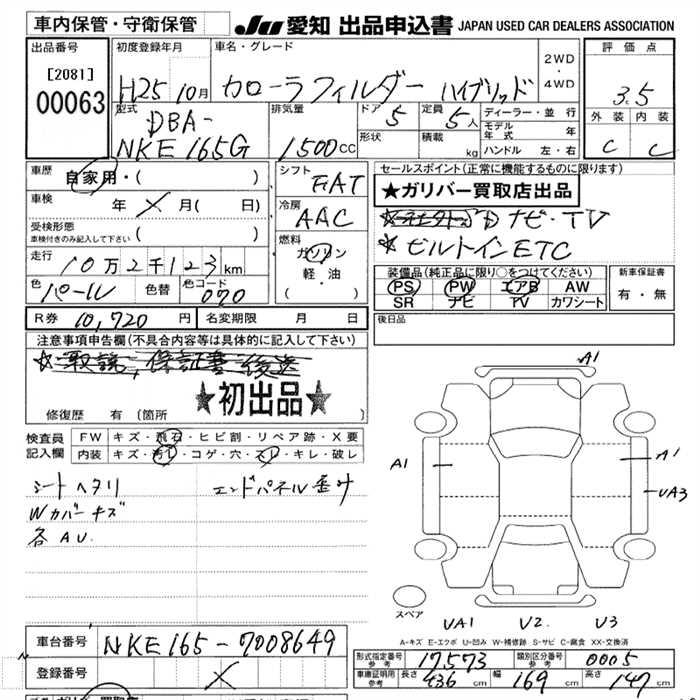 車内保管・守衛保管
JU 愛知 出品申込書 JAPAN USED CAR DEALERS ASSOCIATION
出品番号 初度登録年月 車名・グレード 評価点
[2081]
00063
H25 10月 カローラフィルダー ハイブリッド 2WD・4WD 3.5
型式 排気量 ドア 定員 ディーラー・並行 外装 内装
DBA-
NKE165G 1500cc 5 5人 モデル年式 年 C C
形状 積載 kg ハンドル 左・右
車歴 自家用・( ) シフト FAT セールスポイント(正常に機能するものに限ります)
★ガリバー買取店出品
車検 年 月( 日) 冷房 AAC
ナビ・TV
受検形態
車検付きのみ記入して下さい ( )
ビルトインETC
走行 10万2千123km 燃料 ガソリン・軽・油 ( )
装備品(純正品に限り○をつけてください) 新車保証書
色 パール 色替 色コード 070
PS PW エアB AW 有・無
SR ナビ TV カワシート
R券 10,720円 名変期限 月 日 後日品
注意事項申告欄(不具合内容等は具体的に記入して下さい)
取説,保証書後送
★初出品★
修復歴 有 (箇所
検査員記入欄 FW キズ・飛石・ヒビ割・リペア跡・X要
内装 キズ・汚レ・コゲ・穴・スレ・キレ・破レ
シートヘタリ エンドパネル歪ミ
Wカバーキズ
各AU.
A1
A1 A1
UA3
スペア
UA1 U2. U3
A-キズ E-エクボ U-凹み W-補修跡 S-サビ C-腐食 XX-交換済
車台番号 NKE165-7008649
形式指定番号参考 17573 類別区分番号参考 0005
登録番号
車庫証明用参考 長さ 436cm 幅 169cm 高さ 147cm